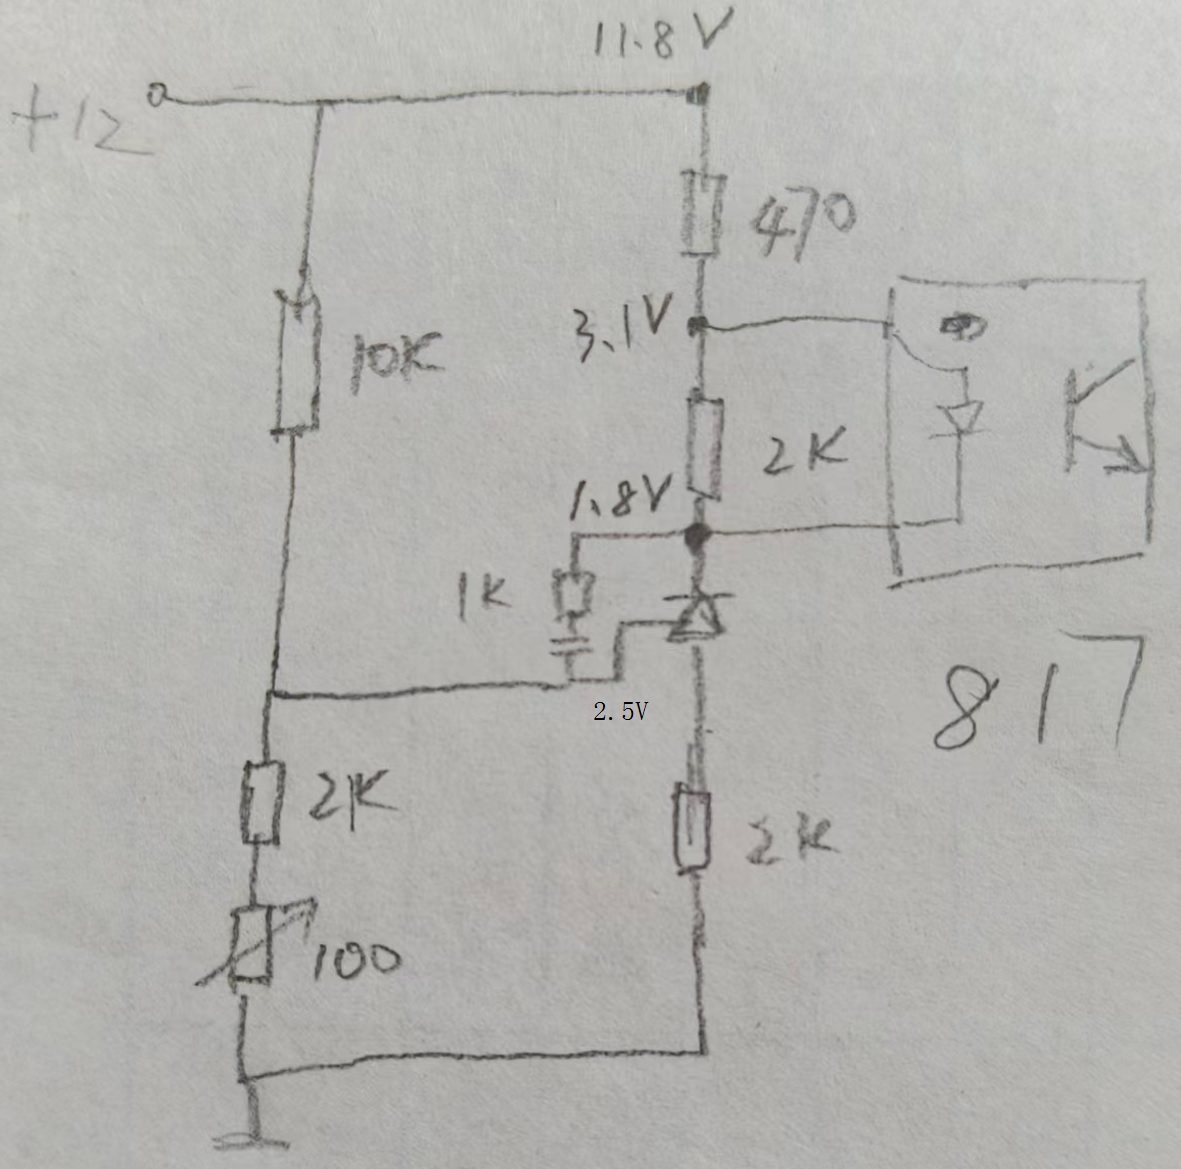 11.8V
+12
470
3.1V
10K
2K
1.8V
1K
2.5V
817
2K
2K
100